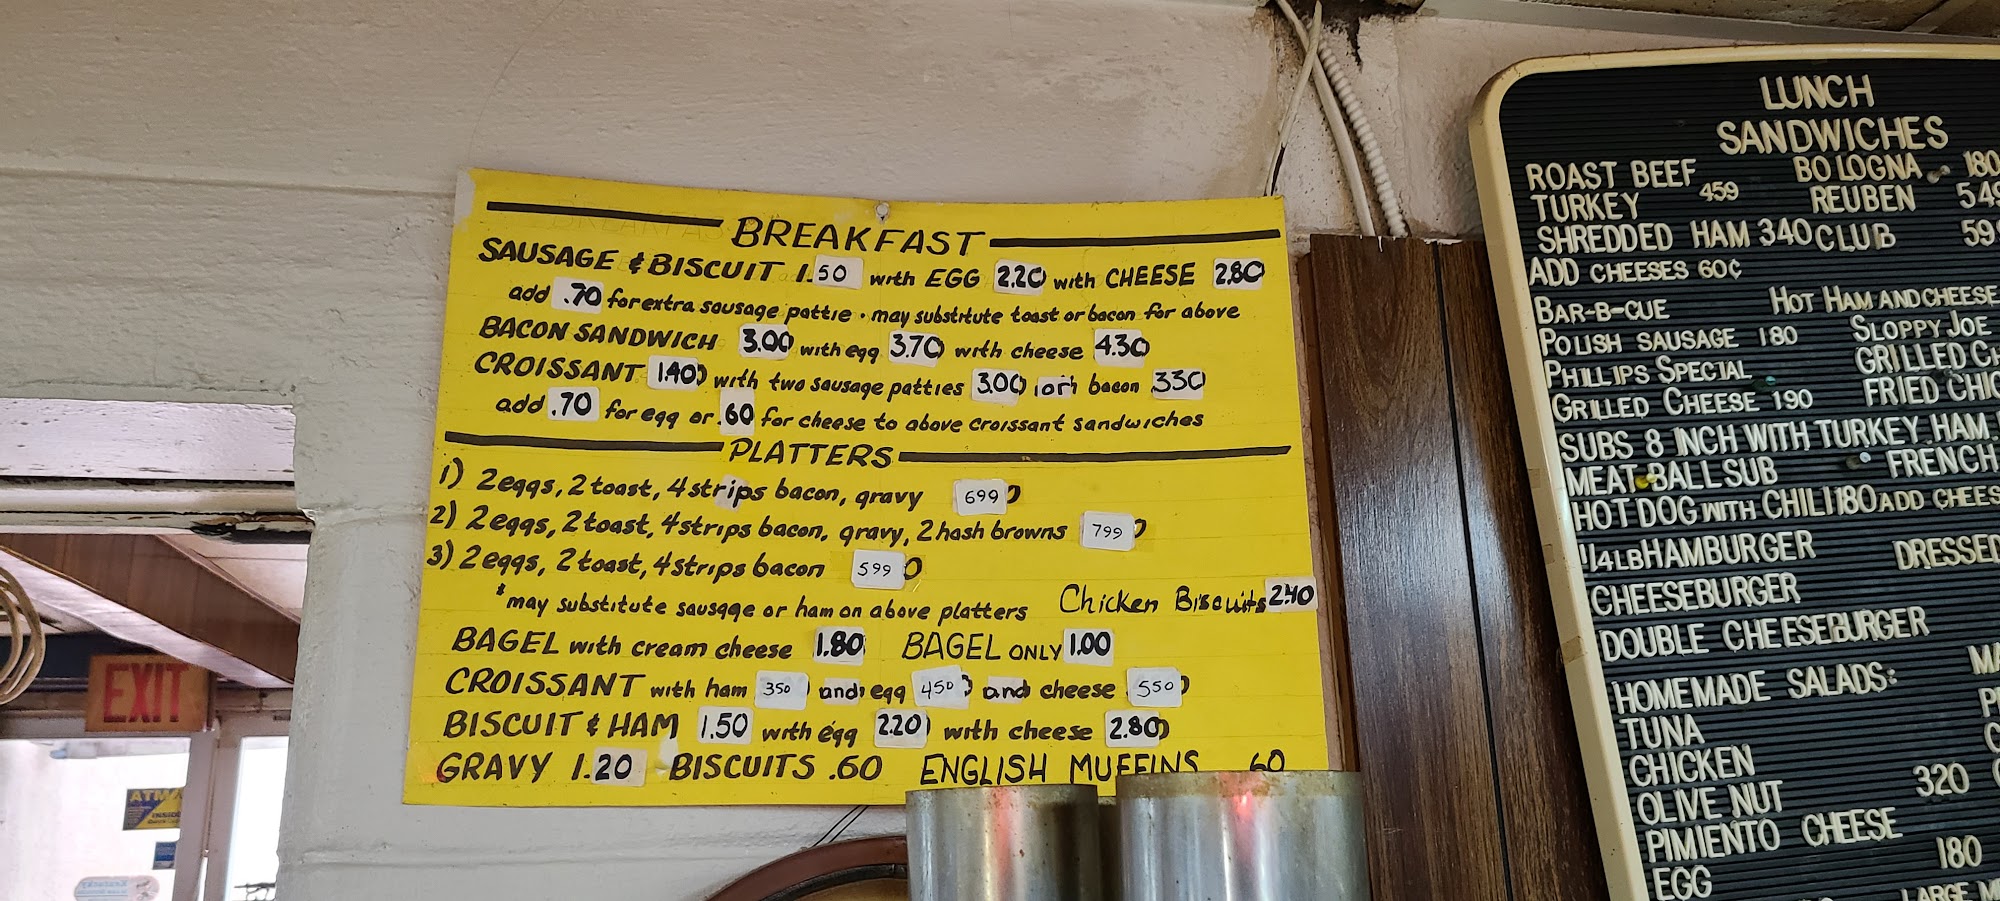 BREAKFAST
SAUSAGE & BISCUIT 1.50 with EGG 2.20 with CHEESE 2.80
add .70 for extra sausage pattie • may substitute toast or bacon for above
BACON SANDWICH 3.00 with egg 3.70 with cheese 4.30
CROISSANT 1.40 with two sausage patties 3.00 or bacon 330
add .70 for egg or .60 for cheese to above croissant sandwiches
PLATTERS
1) 2 eggs, 2 toast, 4 strips bacon, gravy 699
2) 2 eggs, 2 toast, 4 strips bacon, gravy, 2 hash browns 799
3) 2 eggs, 2 toast, 4 strips bacon 599
*may substitute sausage or ham on above platters
Chicken Biscuits 2.40
BAGEL with cream cheese 1.80 BAGEL ONLY 1.00
CROISSANT with ham 350 and egg 450 and cheese 550
BISCUIT & HAM 1.50 with egg 2.20 with cheese 2.80
GRAVY 1.20 BISCUITS .60 ENGLISH MUFFINS 60
LUNCH
SANDWICHES
ROAST BEEF BOLOGNA 180
TURKEY 459 REUBEN 549
SHREDDED HAM 340 CLUB 599
ADD CHEESES 60¢
BAR-B-CUE HOT HAM AND CHEESE
POLISH SAUSAGE 180 SLOPPY JOE
PHILLIPS SPECIAL GRILLED
GRILLED CHEESE 190 FRIED
SUBS 8 INCH WITH TURKEY HAM
MEAT BALL SUB FRENCH
HOT DOG WITH CHILI 180 ADD CHEES
1/4 LB HAMBURGER DRESSED
CHEESEBURGER
DOUBLE CHEESEBURGER
HOMEMADE SALADS:
TUNA
CHICKEN
OLIVE NUT 320
PIMIENTO CHEESE
EGG 180
LARGE
EXIT
ATM
INSIDE